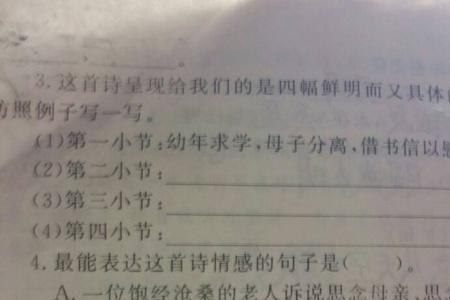 3.这首诗呈现给我们的是四幅鲜明而又具体
仿照例子写一写。
(1)第一小节:幼年求学,母子分离,借书信以慰
(2)第二小节:
(3)第三小节:
(4)第四小节:
4.最能表达这首诗情感的句子是(    )。
A.一位饱经沧桑的老人诉说思念母亲,思